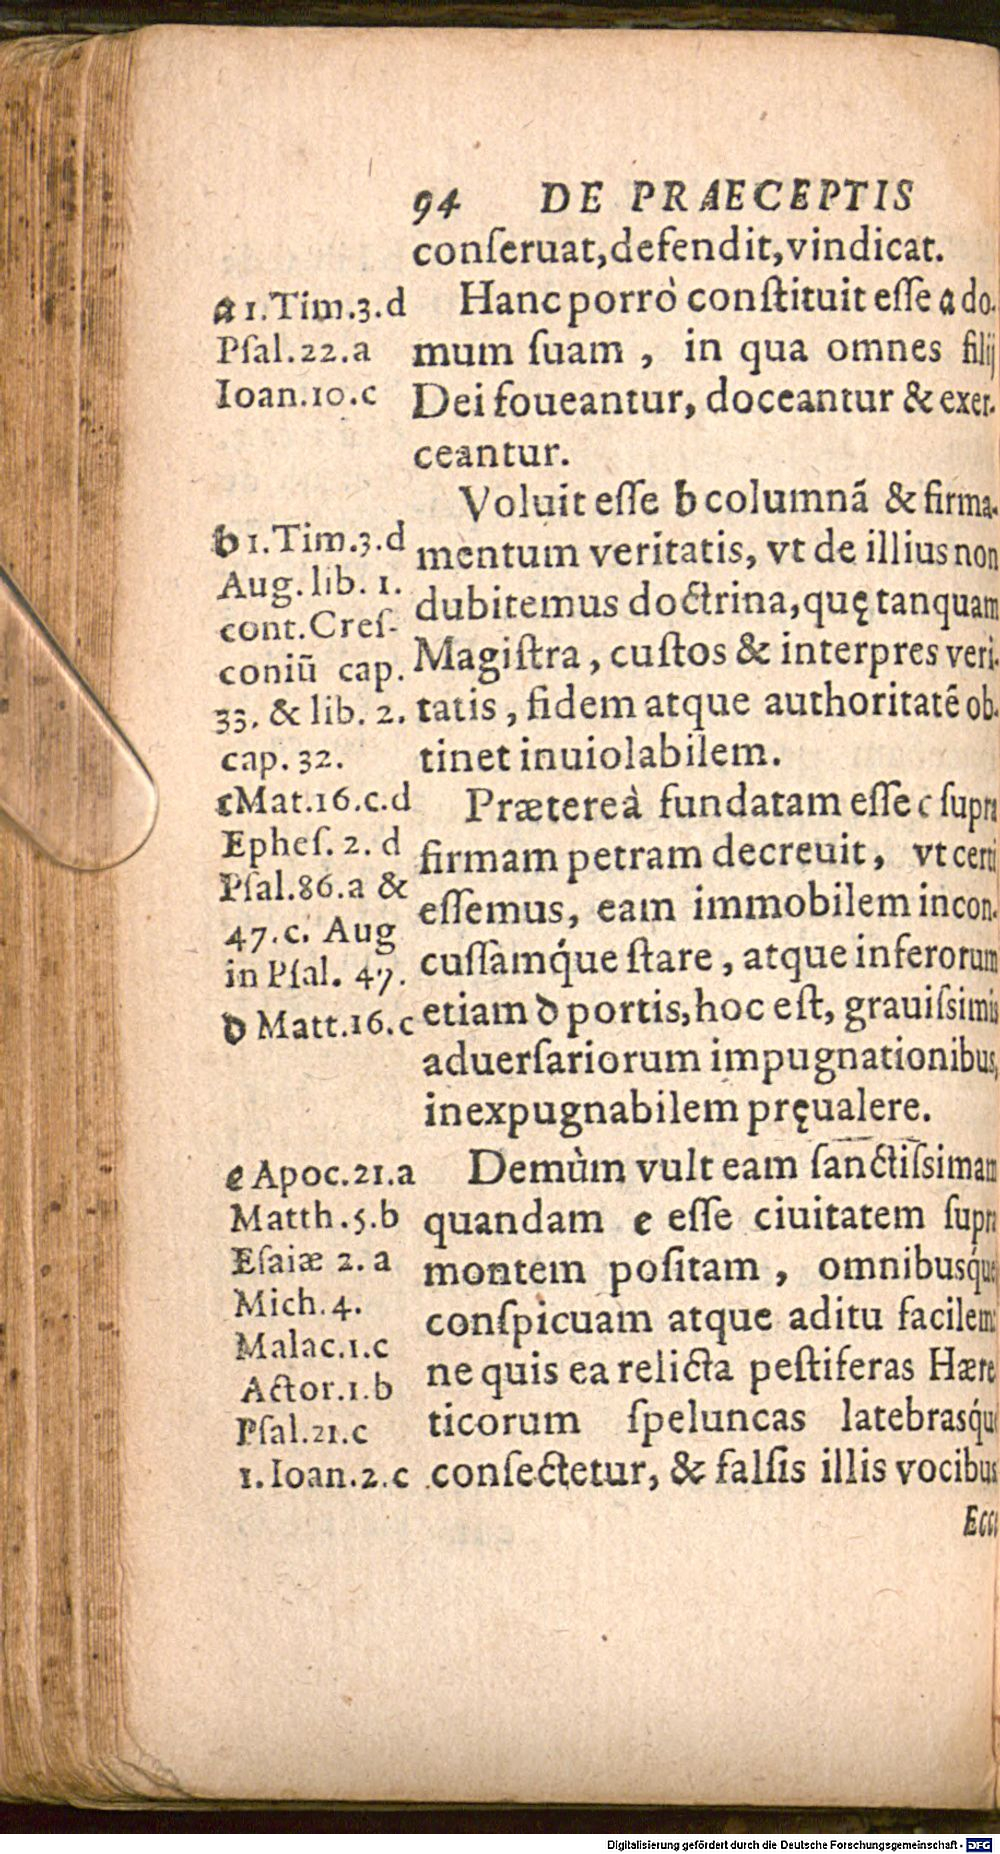 94 DE PRAECEPTIS
conſeruat, defendit, vindicat.
Hanc porrò conſtituit eſſe a do-
mum ſuam , in qua omnes filij
Dei foueantur, doceantur & exer-
ceantur.
Voluit eſſe b columnā & firma-
mentum veritatis, vt de illius non
dubitemus doctrina, quę tanquam
Magiſtra, cuſtos & interpres veri-
tatis, fidem atque authoritatē ob-
tinet inuiolabilem.
Prætereà fundatam eſſe c ſupra
firmam petram decreuit, vt certi
eſſemus, eam immobilem incon-
cuſſámque ſtare, atque inferorum
etiam d portis, hoc eſt, grauiſsimis
aduerſariorum impugnationibus,
inexpugnabilem pręualere.
Demùm vult eam ſanctiſsimam
quandam e eſſe ciuitatem ſupra
montem poſitam , omnibusq́ue
conſpicuam atque aditu facilem:
ne quis ea relicta peſtiferas Hære
ticorum ſpeluncas latebrasq́ue
conſectetur, & falſis illis vocibus
a 1.Tim.3.d
Pſal.22.a
Ioan.10.c
b 1.Tim.3.d
Aug.lib. 1.
cont.Creſ-
coniū cap.
33. & lib. 2.
cap. 32.
c Mat.16.c.d
Epheſ. 2. d
Pſal.86.a &
47.c. Aug
in Pſal. 47.
d Matt.16.c
e Apoc.21.a
Matth.5.b
Eſaiæ 2. a
Mich.4.
Malac.1.c
Actor.1.b
Pſal.21.c
1.Ioan.2.c
Digitalisierung gefördert durch die Deutsche Forschungsgemeinschaft - DFG